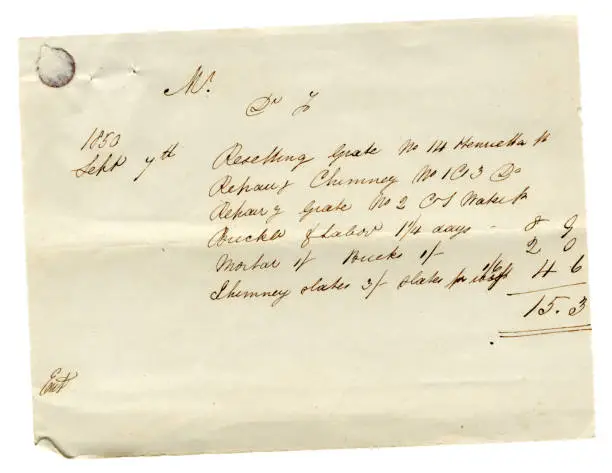 Mr.
Dr To
1850
Sept 7th Resetting Grate No 14 Henrietta St
Repairg Chimney No 103 Do
Repairg Grate No 2 Water St
& Labor 1 1/4 days - 8 9
Mortar 1/ Bricks 1/ 2 0
Chimney slates 3/ slates for 1/6 4 6
15.3
Ent